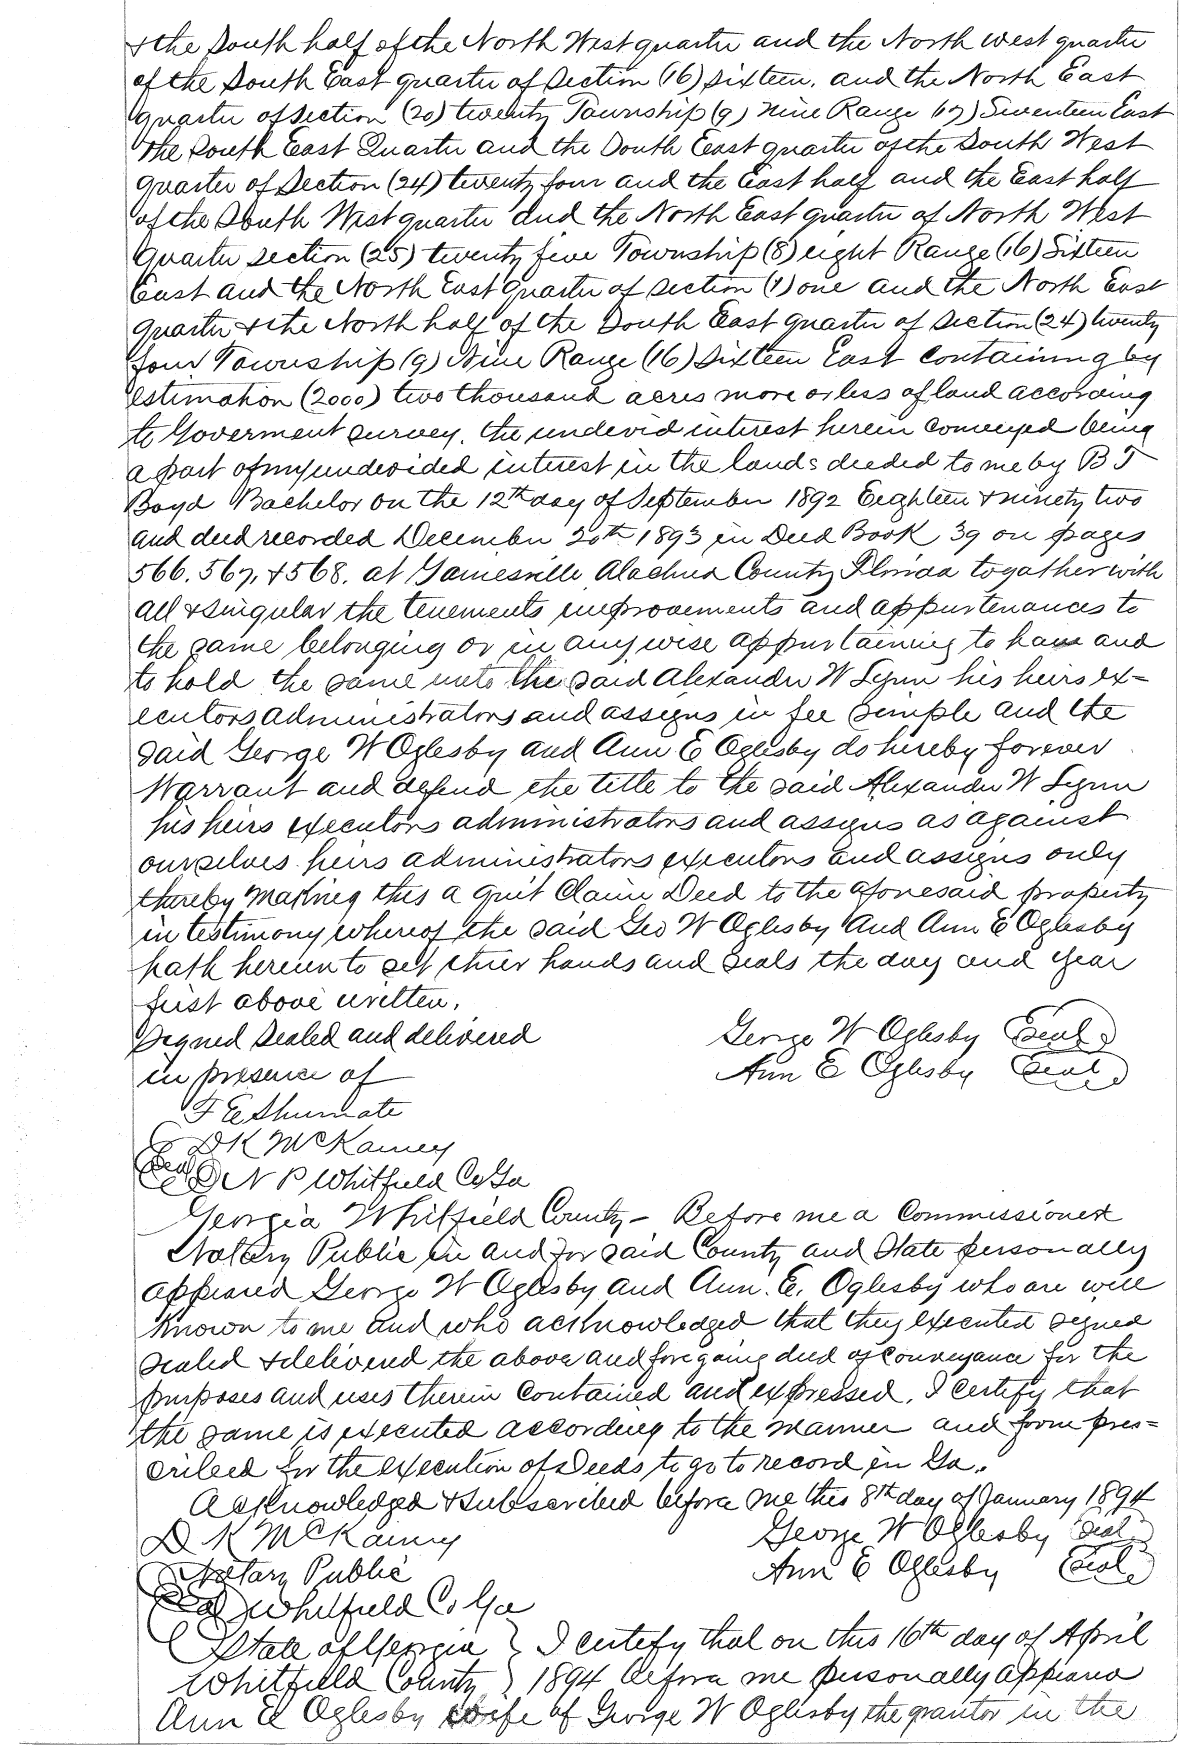 & the South half of the North West quarter and the North west quarter
of the South East quarter of Section (16) sixteen, and the North East
quarter of section (20) twenty Township (9) Nine Range (17) Seventeen East
the South East Quarter and the South East quarter of the South West
quarter of Section (24) twenty four and the East half and the East half
of the South West quarter and the North East quarter of North West
Quarter section (25) twenty five Township (8) eight Range (16) Sixteen
East and the North East quarter of section (1) one and the North East
quarter & the North half of the South East quarter of Section (24) twenty
four Township (9) Nine Range (16) Sixteen East containing by
estimation (2000) two thousand acres more or less of land according
to Goverment survey. the undevid interest herein conveyed being
a part of my undevided interest in the lands deeded to me by B T
Boyd Bachelor on the 12th day of September 1892 Eighteen & ninety two
and deed recorded December 20th 1893 in Deed Book 39 on pages
566. 567, & 568. at Gainesville Alachua County Florida togather with
all & singular the tenements improvements and appurtenances to
the same belonging or in any wise appurtaining to have and
to hold the same unto the said Alexander W Lynn his heirs ex-
ecutors administrators and assigns in fee simple and the
said George W Oglesby and Ann E Oglesby do hereby forever
Warrant and defend the title to the said Alexander W Lynn
his heirs executors administrators and assigns as against
ourselves heirs administrators executors and assigns only
thereby making this a quit Claim Deed to the aforesaid property
in testimony whereof the said Geo W Oglesby and Ann E Oglesby
hath hereunto set thier hands and seals the day and year
first above written.
Signed Sealed and delivered George W Oglesby (Seal)
in presence of Ann E Oglesby (Seal)
F E Shumate
D K McKamey
(Seal) N P Whitfield Co Ga
Georgia Whitfield County - Before me a Commissioned
Notary Public in and for said County and State personally
appeared George W Oglesby and Ann. E. Oglesby who are well
Known to me and who acknowledged that they executed signed
sealed & delivered the above and foregoing deed of Conveyance for the
purposes and uses therein contained and expressed. I certify that
the same is executed according to the manner and form pres=
cribed for the execution of Deeds to go to record in Ga.
Acknowledged & Subscribed before me this 8th day of January 1894
D K McKamey George W Oglesby (Seal)
Notary Public Ann E Oglesby (Seal)
(Seal) Whitfield Co Ga
State of Georgia } I certify that on this 16th day of April
Whitfield County } 1894 before me personally appeard
Ann E Oglesby wife of George W Oglesby the grantor in the